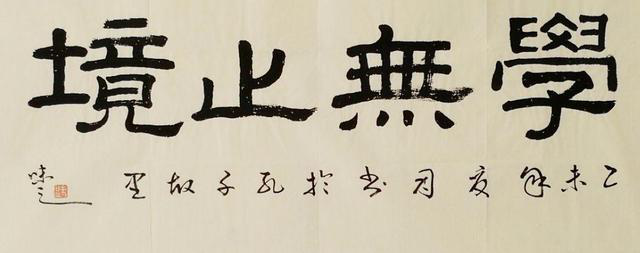 學無止境
乙未年夏月书於孔子故里